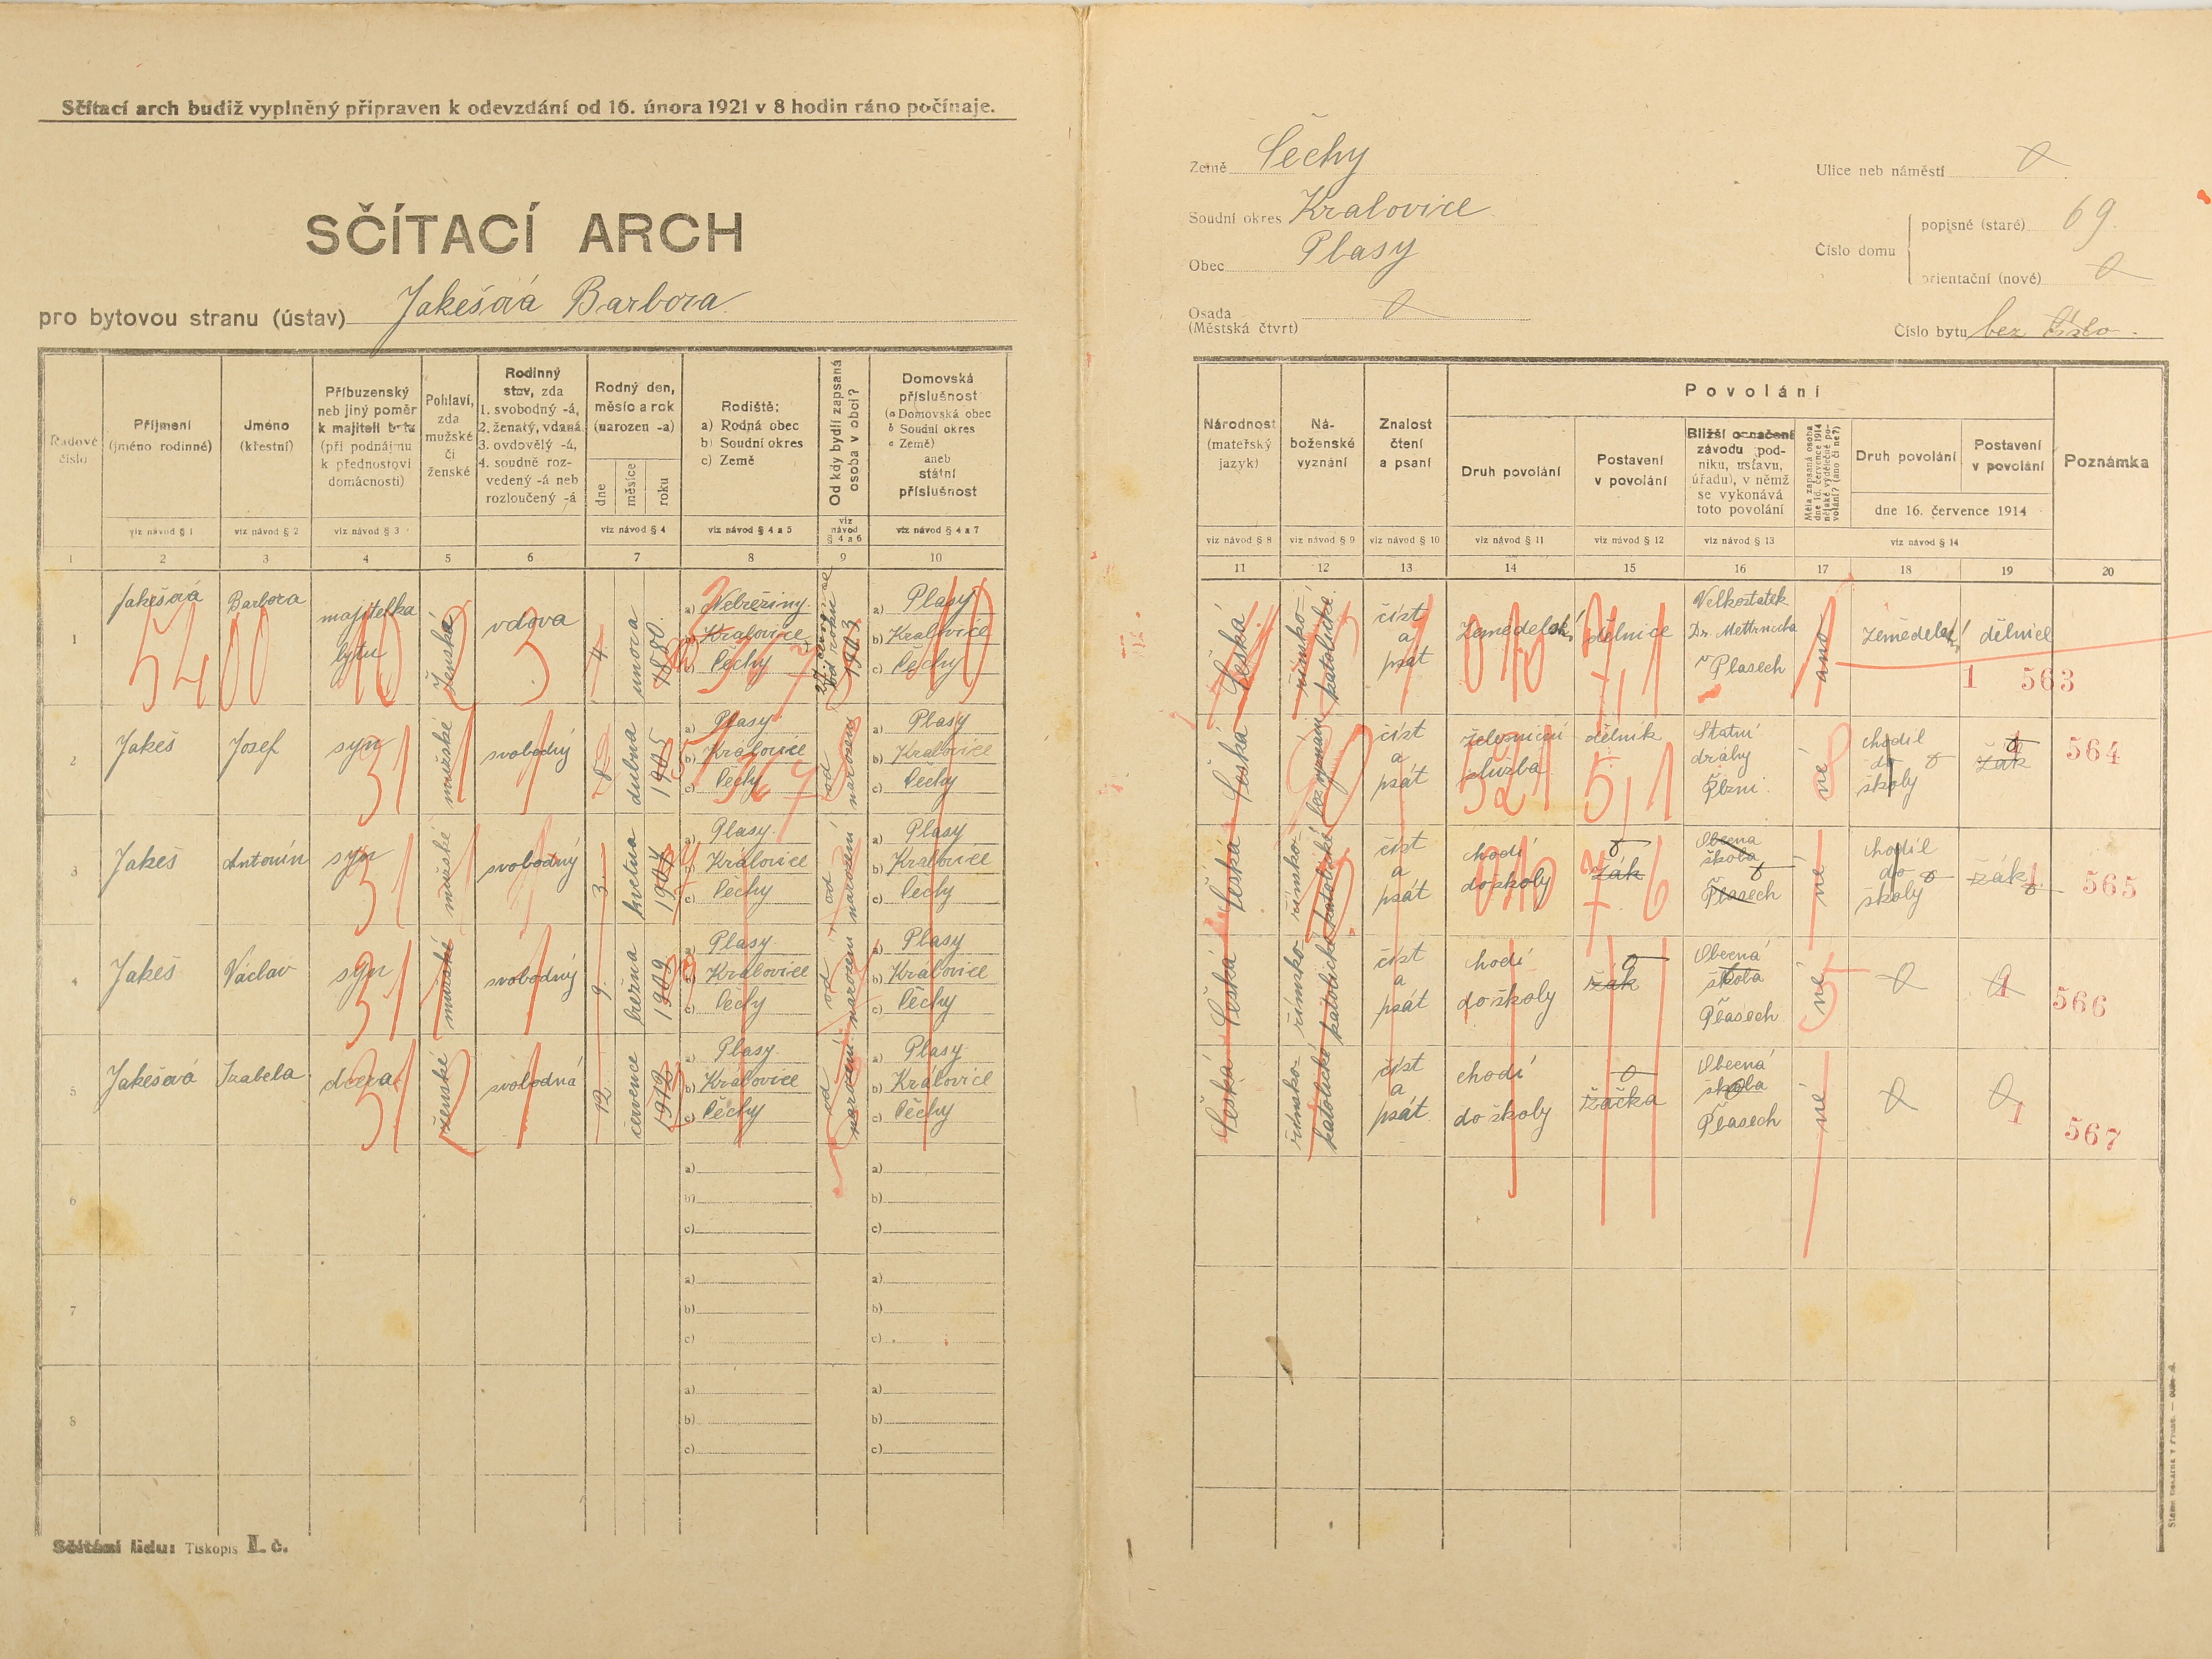 Sčítací arch budiž vyplněný připraven k odevzdání od 16. února 1921 v 8 hodin ráno počínaje.
SČÍTACÍ ARCH
pro bytovou stranu (ústav) Jakešová Barbora
Země Čechy
Soudní okres Kralovice
Obec Plasy
Osada
(Městská čtvrt)
Ulice neb náměstí
Číslo domu
popisné (staré) 69.
orientační (nové)
Číslo bytu bez číslo.
Řadové číslo
Příjmení (jméno rodinné)
Jméno (křestní)
Příbuzenský neb jiný poměr k majiteli bytu (při podnájmu k přednostovi domácnosti)
Pohlaví, zda mužské či ženské
Rodinný stav, zda 1. svobodný -á, 2. ženatý, vdaná 3. ovdovělý -á, 4. soudně rozvedený -á neb rozloučený -á
Rodný den, měsíc a rok (narozen -a)
dne měsíce roku
Rodiště:
a) Rodná obec
b) Soudní okres
c) Země
Od kdy bydlí zapsaná osoba v obci?
Domovská příslušnost
(a Domovská obec
b Soudní okres
c Země)
aneb státní příslušnost
viz návod § 1 viz návod § 2 viz návod § 3 viz návod § 4 viz návod § 4 a 5 viz návod § 4 a 6 viz návod § 4 a 7
1 2 3 4 5 6 7 8 9 10
1 Jakešová Barbora majitelka bytu ženská vdova 4. února 1880.
a) Nebřeziny
b) Kralovice
c) Čechy
od roku 1903
a) Plasy
b) Kralovice
c) Čechy
5400 10 2 3
2 Jakeš Josef syn mužské svobodný 8 dubna 1905
a) Plasy
b) Kralovice
c) Čechy
od narození
a) Plasy
b) Kralovice
c) Čechy
31 1
3 Jakeš Antonín syn mužské svobodný 3. května 1907
a) Plasy
b) Kralovice
c) Čechy
od narození
a) Plasy
b) Kralovice
c) Čechy
31
4 Jakeš Václav syn mužské svobodný 9. března 1909
a) Plasy
b) Kralovice
c) Čechy
od narození
a) Plasy
b) Kralovice
c) Čechy
31
5 Jakešová Izabela dcera ženské svobodná 12. července 1912
a) Plasy
b) Kralovice
c) Čechy
od narození
a) Plasy
b) Kralovice
c) Čechy
31
6
a)
b)
c)
a)
b)
c)
7
a)
b)
c)
a)
b)
c)
8
a)
b)
c)
a)
b)
c)
Sčítání lidu: Tiskopis I. č.
Národnost (mateřský jazyk)
Náboženské vyznání
Znalost čtení a psaní
Povolání
Druh povolání
Postavení v povolání
Bližší označení závodu (podniku, ústavu, úřadu), v němž se vykonává toto povolání
Měla zapsaná osoba dne 16. července 1914 nějaké výdělečné povolání? (ano či ne?)
Druh povolání
Postavení v povolání
dne 16. července 1914
Poznámka
viz návod § 8 viz návod § 9 viz návod § 10 viz návod § 11 viz návod § 12 viz návod § 13 viz návod § 14
11 12 13 14 15 16 17 18 19 20
Česká římsko-katolické. číst a psát zemědělská dělnice Velkostatek Dr. Metternicha v Plasech ano zemědělst. dělnice
010 7,1 1 563
Česká bez vyznání číst a psát železniční služba dělník Statní dráhy Plzni. né chodil do školy žák
521 5,1 564
Česká římsko-katolické číst a psát chodí do školy žák Obecná škola Plasech né chodil do školy žák
010 7,6 565
Česká římsko-katolické číst a psát chodí do školy žák Obecná škola Plasech né
566
Česká římsko-katolické číst a psát. chodí do školy žáčka Obecná škola Plasech né
567